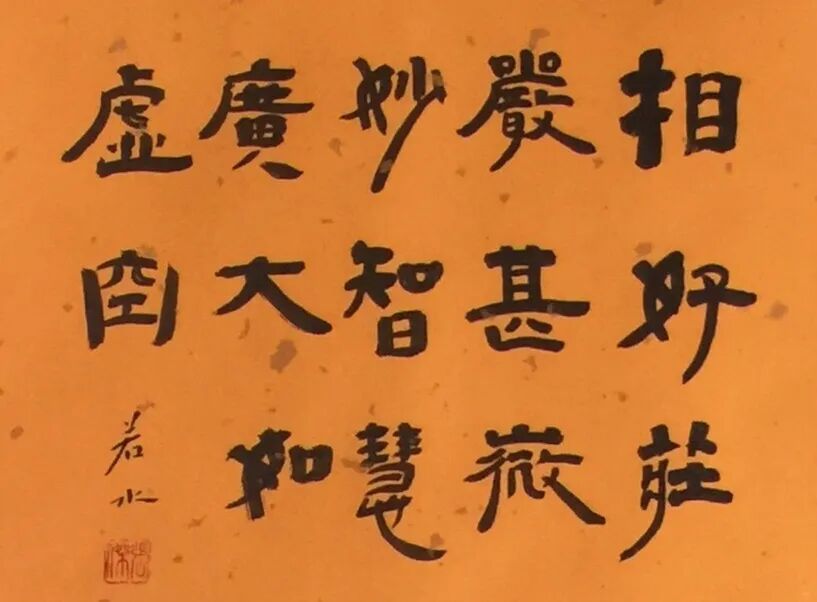 相好莊
嚴甚微
妙智慧
廣大如
虛空
若水